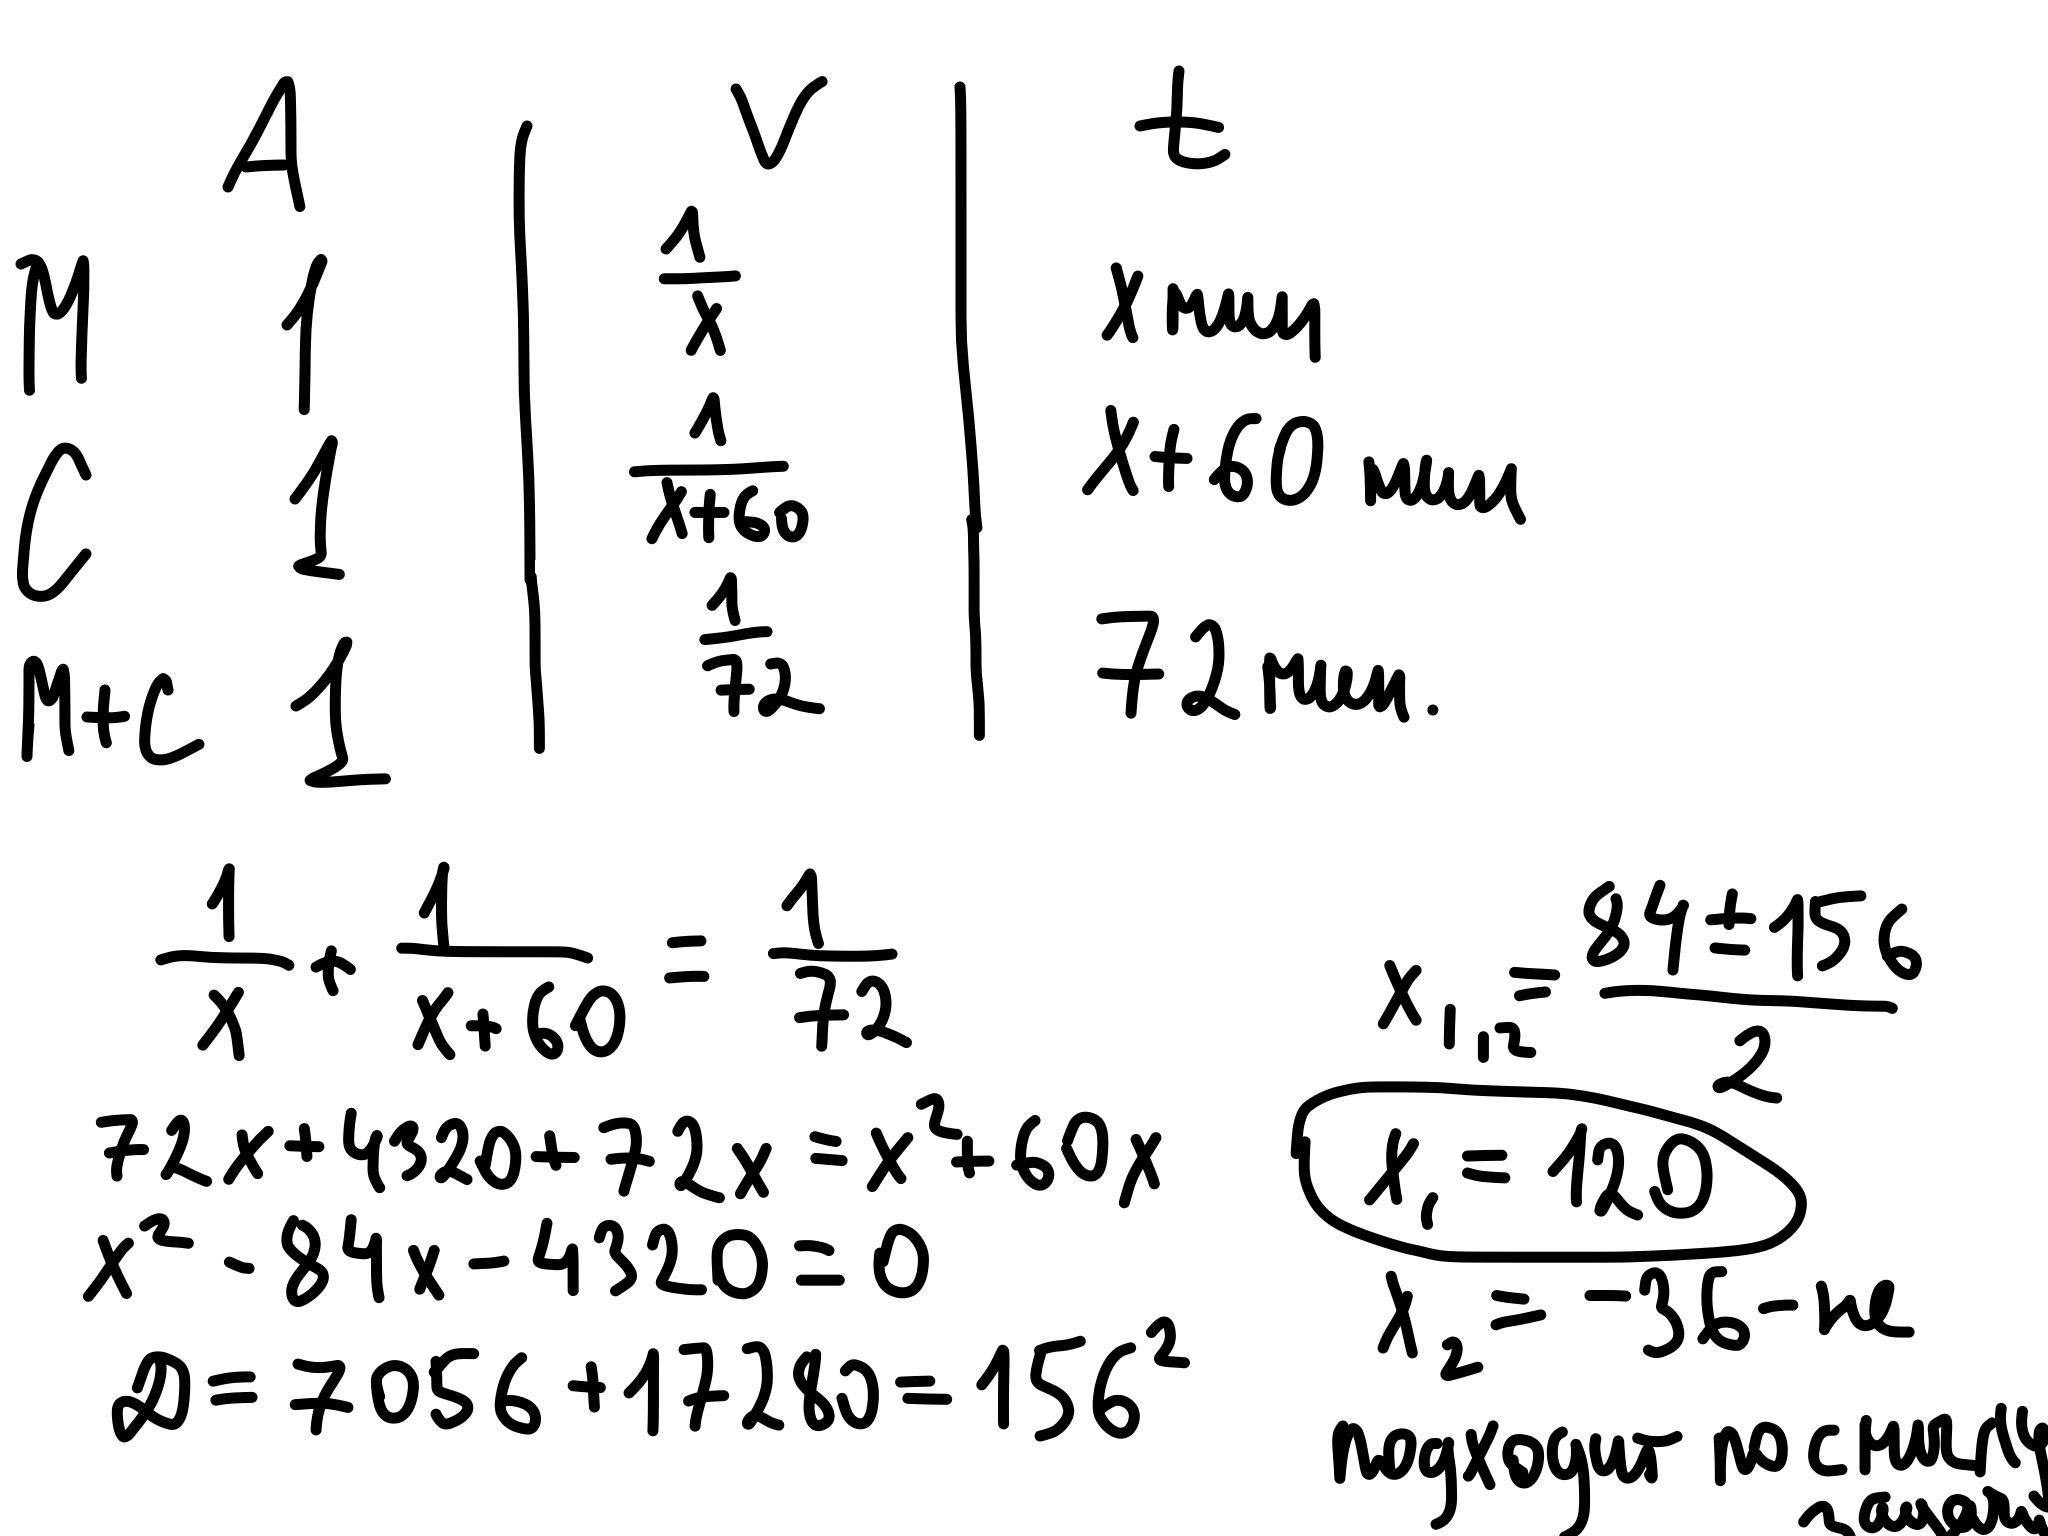 A | V | t
М 1 1/x x мин
С 1 1/(x+60) x+60 мин
М+С 1 1/72 72 мин.
1/x + 1/(x+60) = 1/72
72x+4320+72x = x²+60x
x² - 84x - 4320 = 0
D = 7056 + 17280 = 156²
x₁,₂ = (84±156)/2
x₁ = 120
x₂ = -36 - не
подходит по смыслу